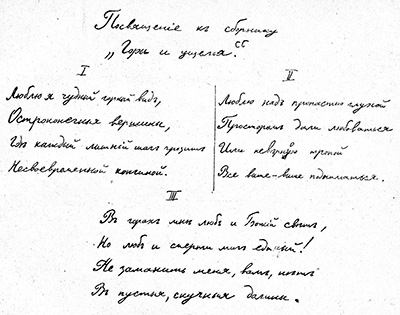 Посвященiе къ сборнику
„Горы и ущелья“.
I
Люблю я чудный горный видъ,
Остроконечныя вершины,
Гдѣ каждый лишнiй шагъ грозитъ
Несвоевременной кончиной.
II
Люблю надъ пропастью глухой
Просторомъ дали любоваться
Или невѣрною тропой
Все выше-выше подниматься.
III
Въ горахъ мнѣ любъ и Божiй свѣтъ,
Но любъ и смерти мигъ единый!
Не заманить меня, вамъ, нѣтъ
Въ пустыя, скучныя долины.